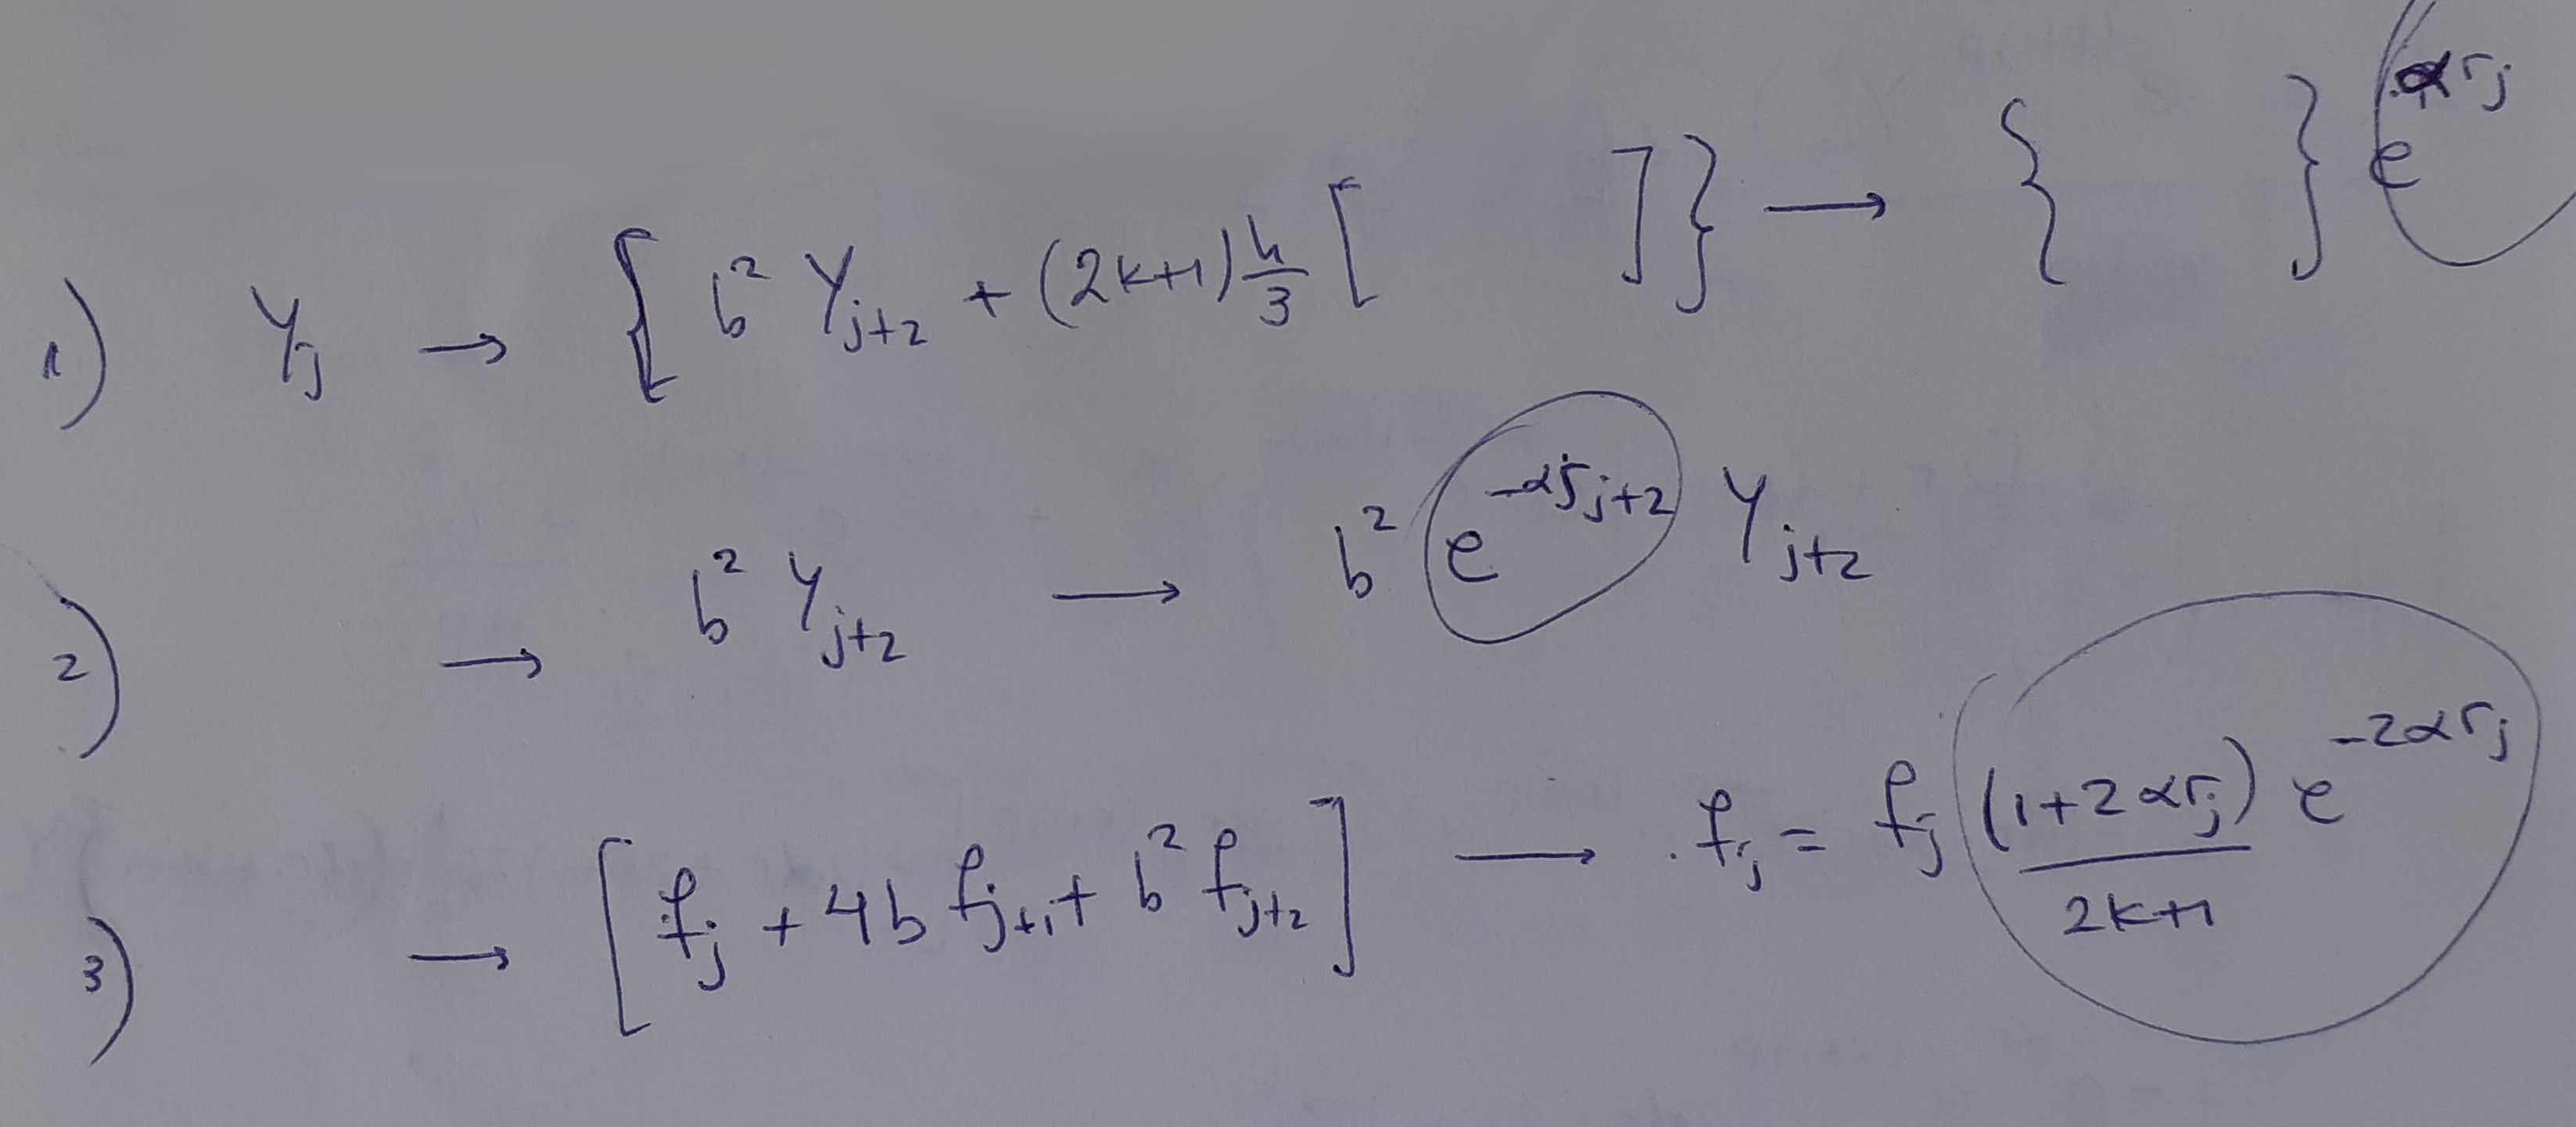 1) Y_j → { b² Y_{j+2} + (2k+1) h/3 [ ] } → { } e^{αr_j}
2) → b² Y_{j+2} → b² e^{-αr_{j+2}} Y_{j+2}
3) → [ f_j + 4b f_{j+1} + b² f_{j+2} ] → f_j = f_j (1+2αr_j)/(2k+1) e^{-2αr_j}